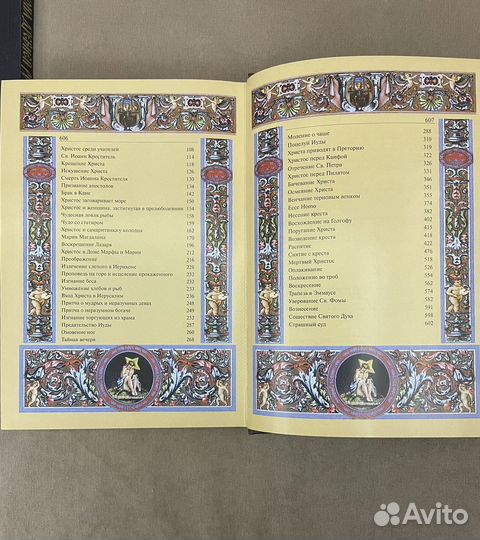 606
Христос среди учителей 108
Св. Иоанн Креститель 114
Крещение Христа 118
Искушение Христа 126
Смерть Иоанна Крестителя 130
Призвание апостолов 134
Брак в Кане 142
Христос заговаривает море 150
Христос и женщина, застигнутая в прелюбодеянии 154
Чудесная ловля рыбы 158
Чудо со статиром 159
Христос и самаритянка у колодца 162
Мария Магдалина 170
Воскрешение Лазаря 196
Христос в Доме Марфы и Марии 206
Преображение 212
Излечение слепого в Иерихоне 221
Проповедь на горе и исцеление прокаженного 222
Изгнание беса 232
Умножение хлебов и рыб 232
Вход Христа в Иерусалим 236
Притча о мудрых и неразумных девах 241
Притча о неразумном богаче 241
Изгнание торгующих из храма 242
Предательство Иуды 251
Омовение ног 260
Тайная вечеря 268
607
Моление о чаше 288
Поцелуй Иуды 310
Христа приводят в Преторию 319
Христос перед Каифой 322
Отречение Св. Петра 326
Христос перед Пилатом 331
Бичевание Христа 346
Осмеяние Христа 351
Венчание терновым венком 355
Ecce Homo 374
Несение креста 382
Восхождение на Голгофу 402
Поругание Христа 415
Возведение креста 418
Распятие 422
Снятие с креста 476
Мертвый Христос 510
Оплакивание 528
Положение во гроб 554
Воскресение 562
Трапеза в Эммаусе 574
Уверование Св. Фомы 582
Вознесение 591
Сошествие Святого Духа 598
Страшный суд 602
Avito